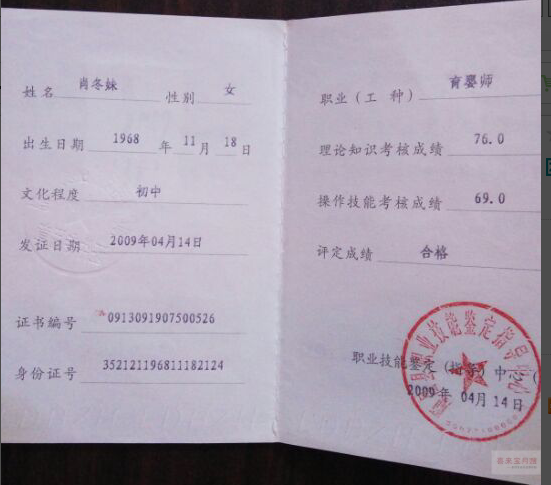 姓名 肖冬妹 性别 女
出生日期 1968 年 11 月 18 日
文化程度 初中
发证日期 2009年04月14日
证书编号 0913091907500526
身份证号 352121196811182124
职业（工 种） 育婴师
理论知识考核成绩 76.0
操作技能考核成绩 69.0
评定成绩 合格
职业技能鉴定（指导）中心（
2009年 04月 14日
职业技能鉴定指导